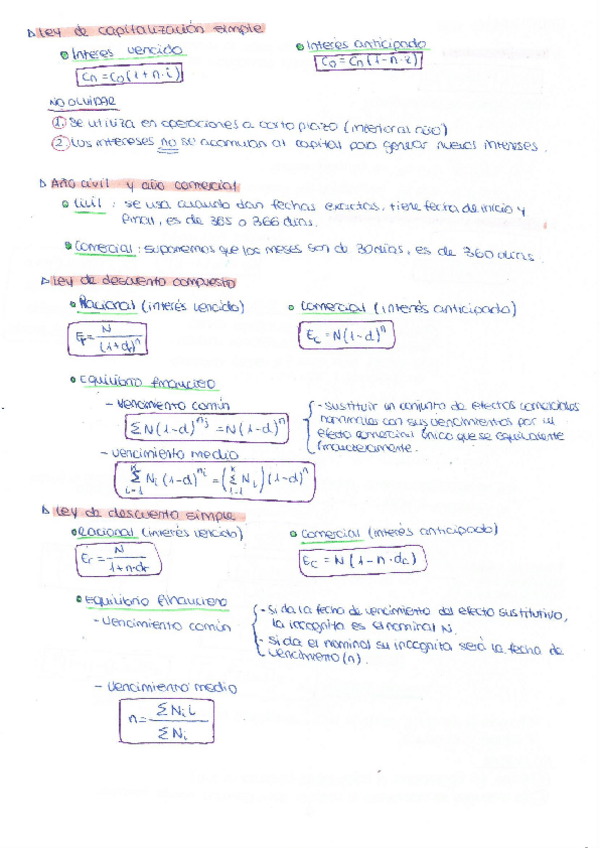 Ley de capitalización simple
Interés vencido
Interés anticipado
Cn = C0 (1+n·i)
C0 = Cn (1-n·i)
NO OLVIDAR
1. Se utiliza en operaciones a corto plazo (inferior al año)
2. Los intereses no se acumulan al capital para generar nuevos intereses.
Año civil y año comercial
Civil : se usa cuando dan fechas exactas, tiene fecha de inicio y
final, es de 365 o 366 días.
Comercial : suponemos que los meses son de 30 días, es de 360 días.
Ley de descuento compuesto
Racional (interés vencido)
Comercial (interés anticipado)
Er = N / (1+dr)^n
Ec = N(1-d)^n
Equilibrio financiero
- Vencimiento común
Σ N(1-d)^nj = N(1-d)^n
- sustituir un conjunto de efectos comerciales
nominales con sus vencimientos por un
efecto comercial único que sea equivalente
financieramente.
- Vencimiento medio
Σ Ni (1-d)^ni = (Σ Ni)(1-d)^n
Ley de descuento simple
Racional (interés vencido)
Comercial (interés anticipado)
Er = N / 1+n·dr
Ec = N (1-n·dc)
Equilibrio financiero
- Vencimiento común
- Si da la fecha de vencimiento del efecto sustitutivo,
la incognita es el nominal N.
- Si da el nominal su incognita será la fecha de
vencimiento (n).
- Vencimiento medio
n = Σ Ni i / Σ Ni